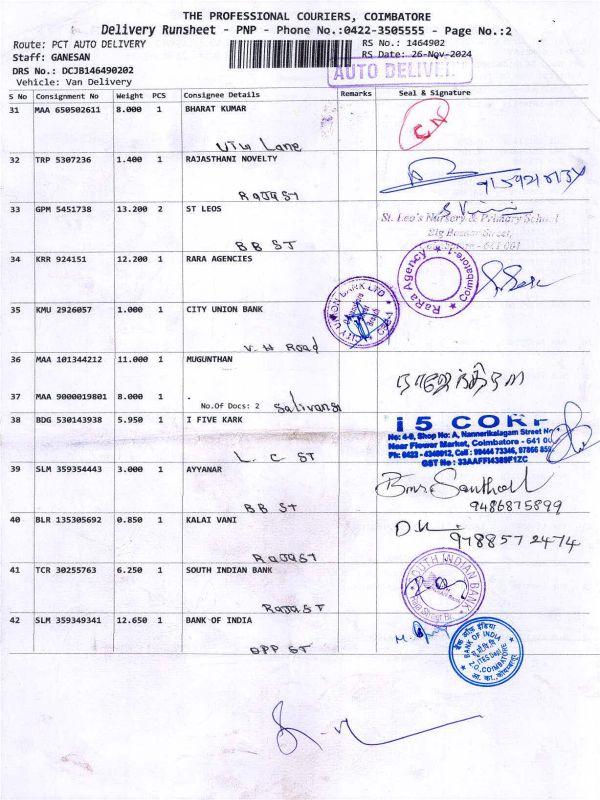 THE PROFESSIONAL COURIERS, COIMBATORE
Delivery Runsheet - PNP - Phone No.:0422-3505555 - Page No.:2
Route: PCT AUTO DELIVERY RS No.: 1464902
Staff: GANESAN RS Date: 26-Nov-2024
DRS No.: DCJB146490202 AUTO DELIVERY
Vehicle: Van Delivery
S No Consignment No Weight PCS Consignee Details Remarks Seal & Signature
31 MAA 650502611 8.000 1 BHARAT KUMAR
CN
Lane
32 TRP 5307236 1.400 1 RAJASTHANI NOVELTY
RAJA ST
33 GPM 5451738 13.200 2 ST LEOS
St. Leo's Nursery & Primary School
Big Bazaar Street,
BB ST
34 KRR 924151 12.200 1 RARA AGENCIES
RaRa Agency ★ Coimbatore ★
35 KMU 2926057 1.000 1 CITY UNION BANK
CITY UNION BANK LTD
V.H Road
36 MAA 101344212 11.000 1 MUGUNTHAN
37 MAA 9000019801 8.000 1 .
No.Of Docs: 2
38 BDG 530143938 5.950 1 I FIVE KARK
i 5 CORP
No: 4-9, Shop No: A, Nannerikalagam Street
Near Flower Market, Coimbatore - 641 00
Ph: 0423 - 4349912, Cell : 99444 73346, 97866
GST No : 33AAFFI4389F1ZC
L. C ST
39 SLM 359354443 3.000 1 AYYANAR
BB ST
9486875899
40 BLR 135305692 0.850 1 KALAI VANI
9788572474
RAJA ST
41 TCR 30255763 6.250 1 SOUTH INDIAN BANK
SOUTH INDIAN BANK
RAJA ST
42 SLM 359349341 12.650 1 BANK OF INDIA
बैंक ऑफ इंडिया
BANK OF INDIA
Z.O.COIMBATORE
OPP ST